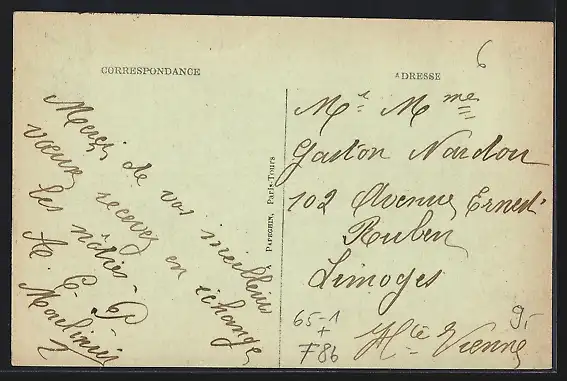 CORRESPONDANCE
Merci de vos meilleurs
vœux recevez en échange
les nôtres
Moulinier
PAPEGHIN, Paris-Tours
ADRESSE
6
Mr Mme
Gaston Nardou
102 Avenue Ernest
Ruben
Limoges
Hte Vienne
65-1
+
F86
9,-